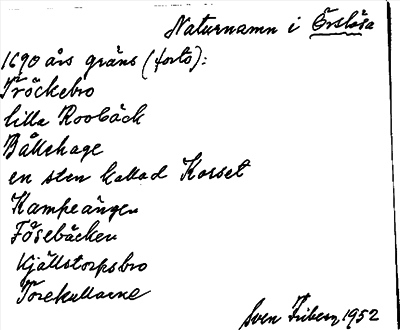 Naturnamn i Örslösa
1690 års gräns (forts):
Tröckebro
lilla Roobäck
Bällshage
en sten kallad Korset
Kampeängen
Fösebäcken
Kjällstorpsbro
Torekullarne
Sven Friberg, 1952